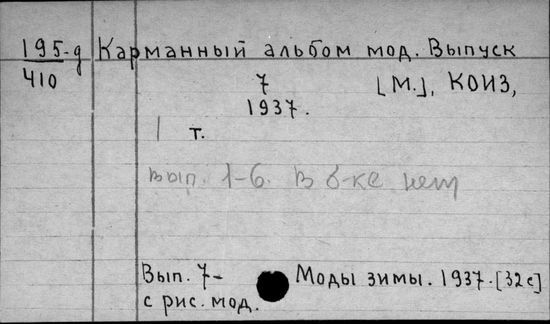 195-д Карманный альбом мод. Выпуск
410
7 [М.], КОИЗ,
1937.
1 т.
Вып. 1-6. В б-ке нет
Вып. 7- Моды зимы. 1937. [32 с]
с рис. мод.